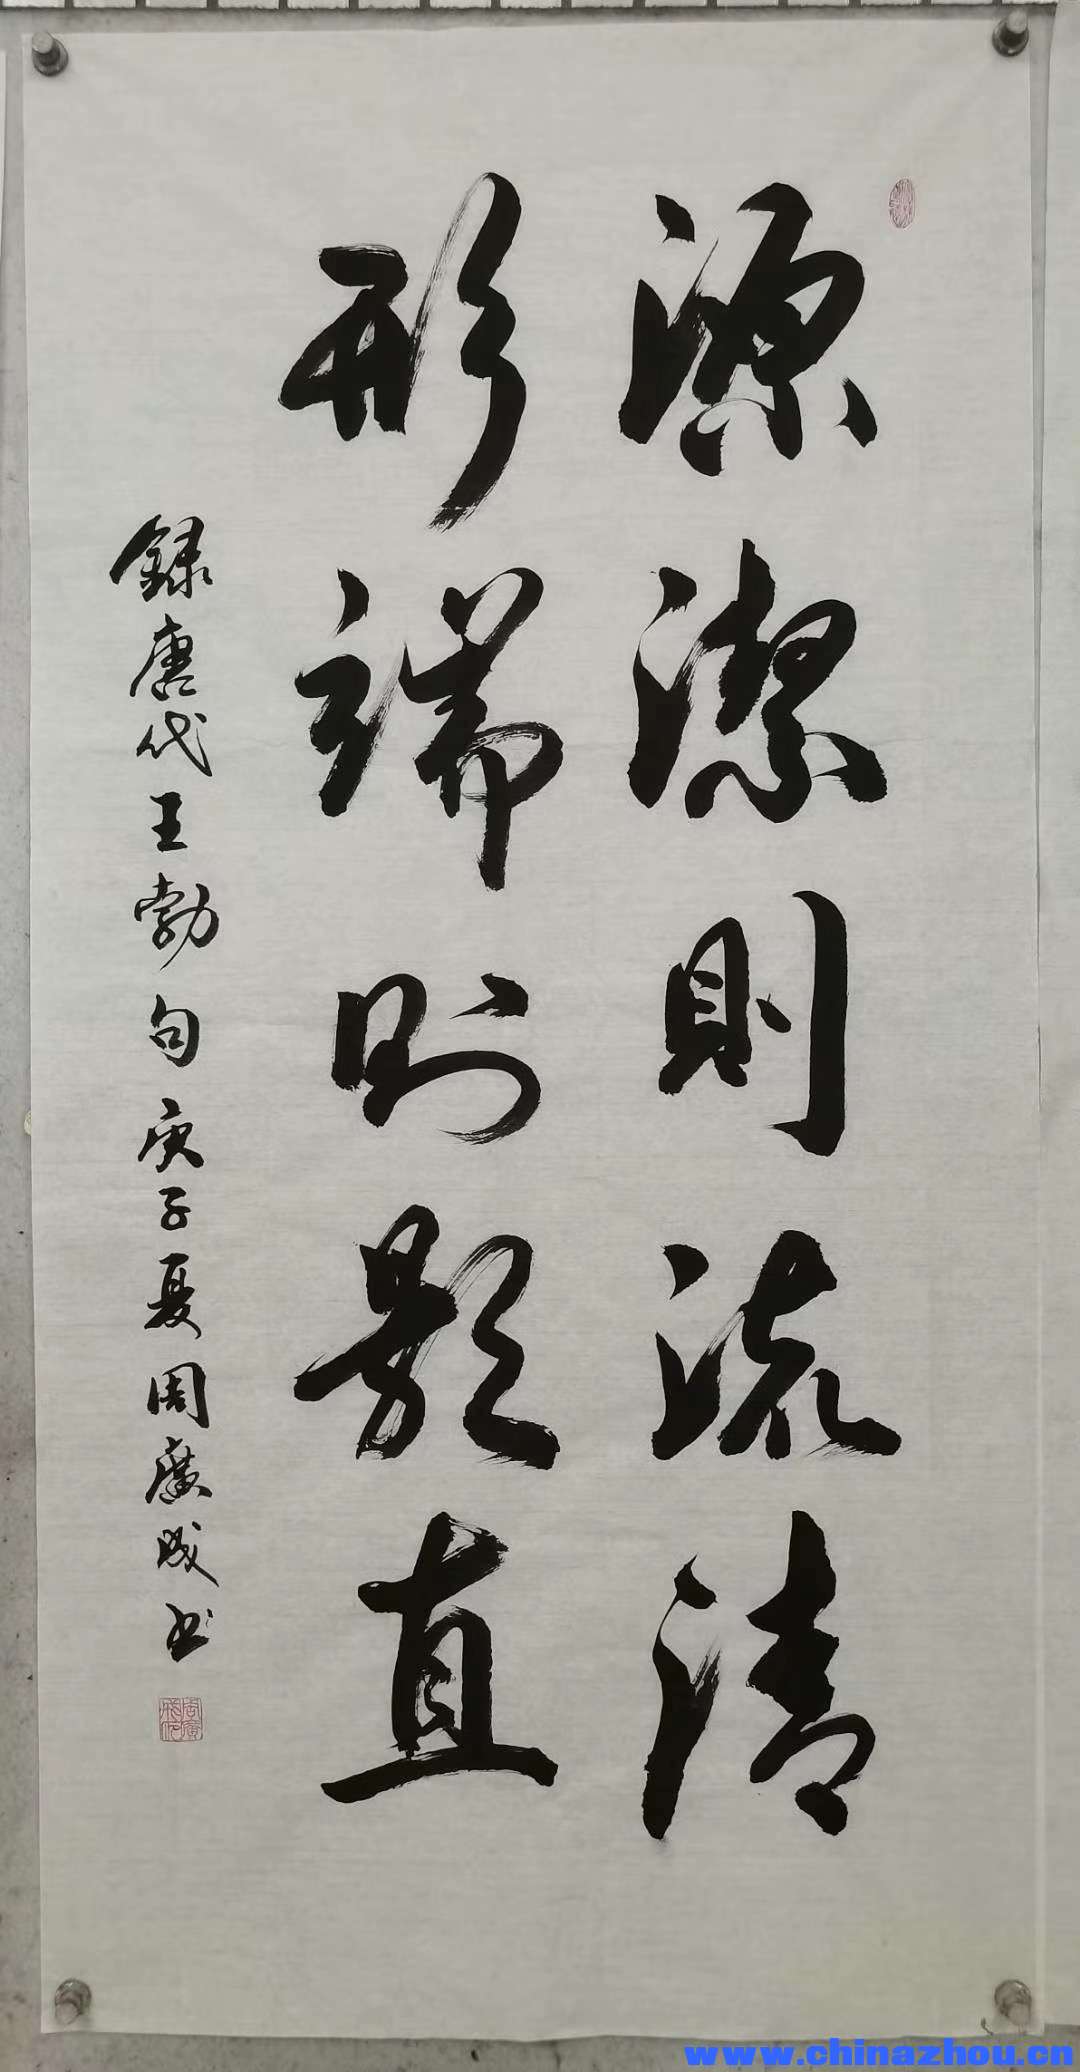 源潔則流清
形端則影直
録唐代王勃句庚子夏周廣成书
www.chinazhou.cn